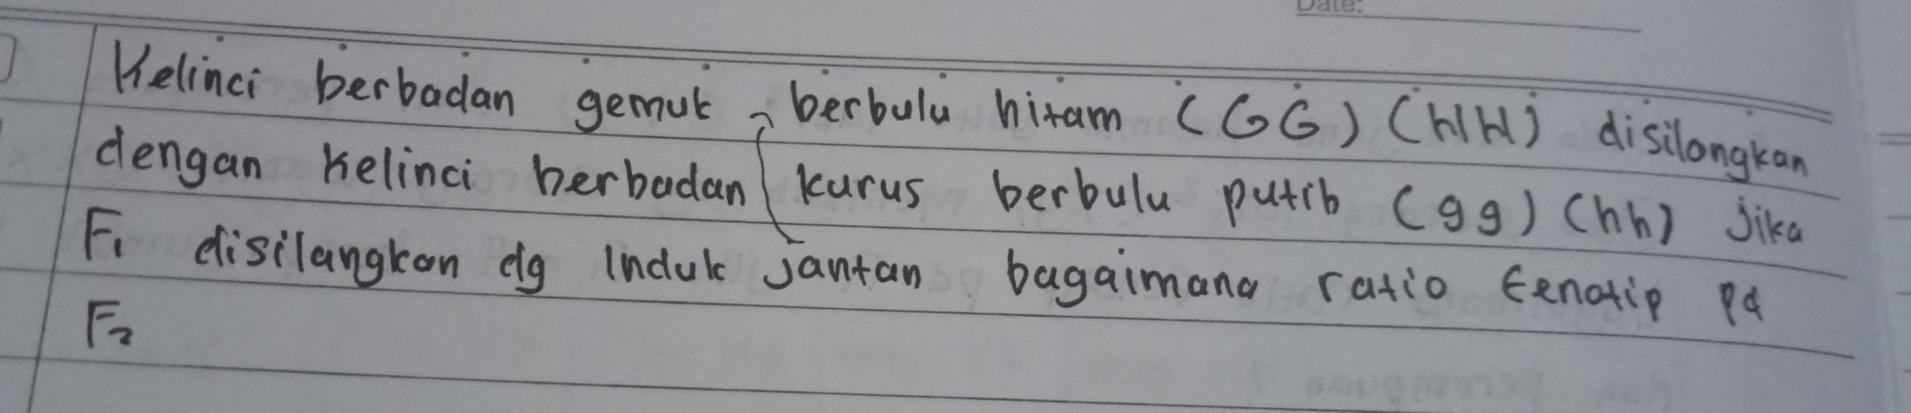 Date:
Kelinci berbadan gemuk, berbulu hitam (GG) (HH) disilongkan
dengan kelinci berbadan kurus berbulu putih (gg) (hh) Jika
F1 disilangkan dg Induk jantan bagaimana ratio Fenotip pd
F2